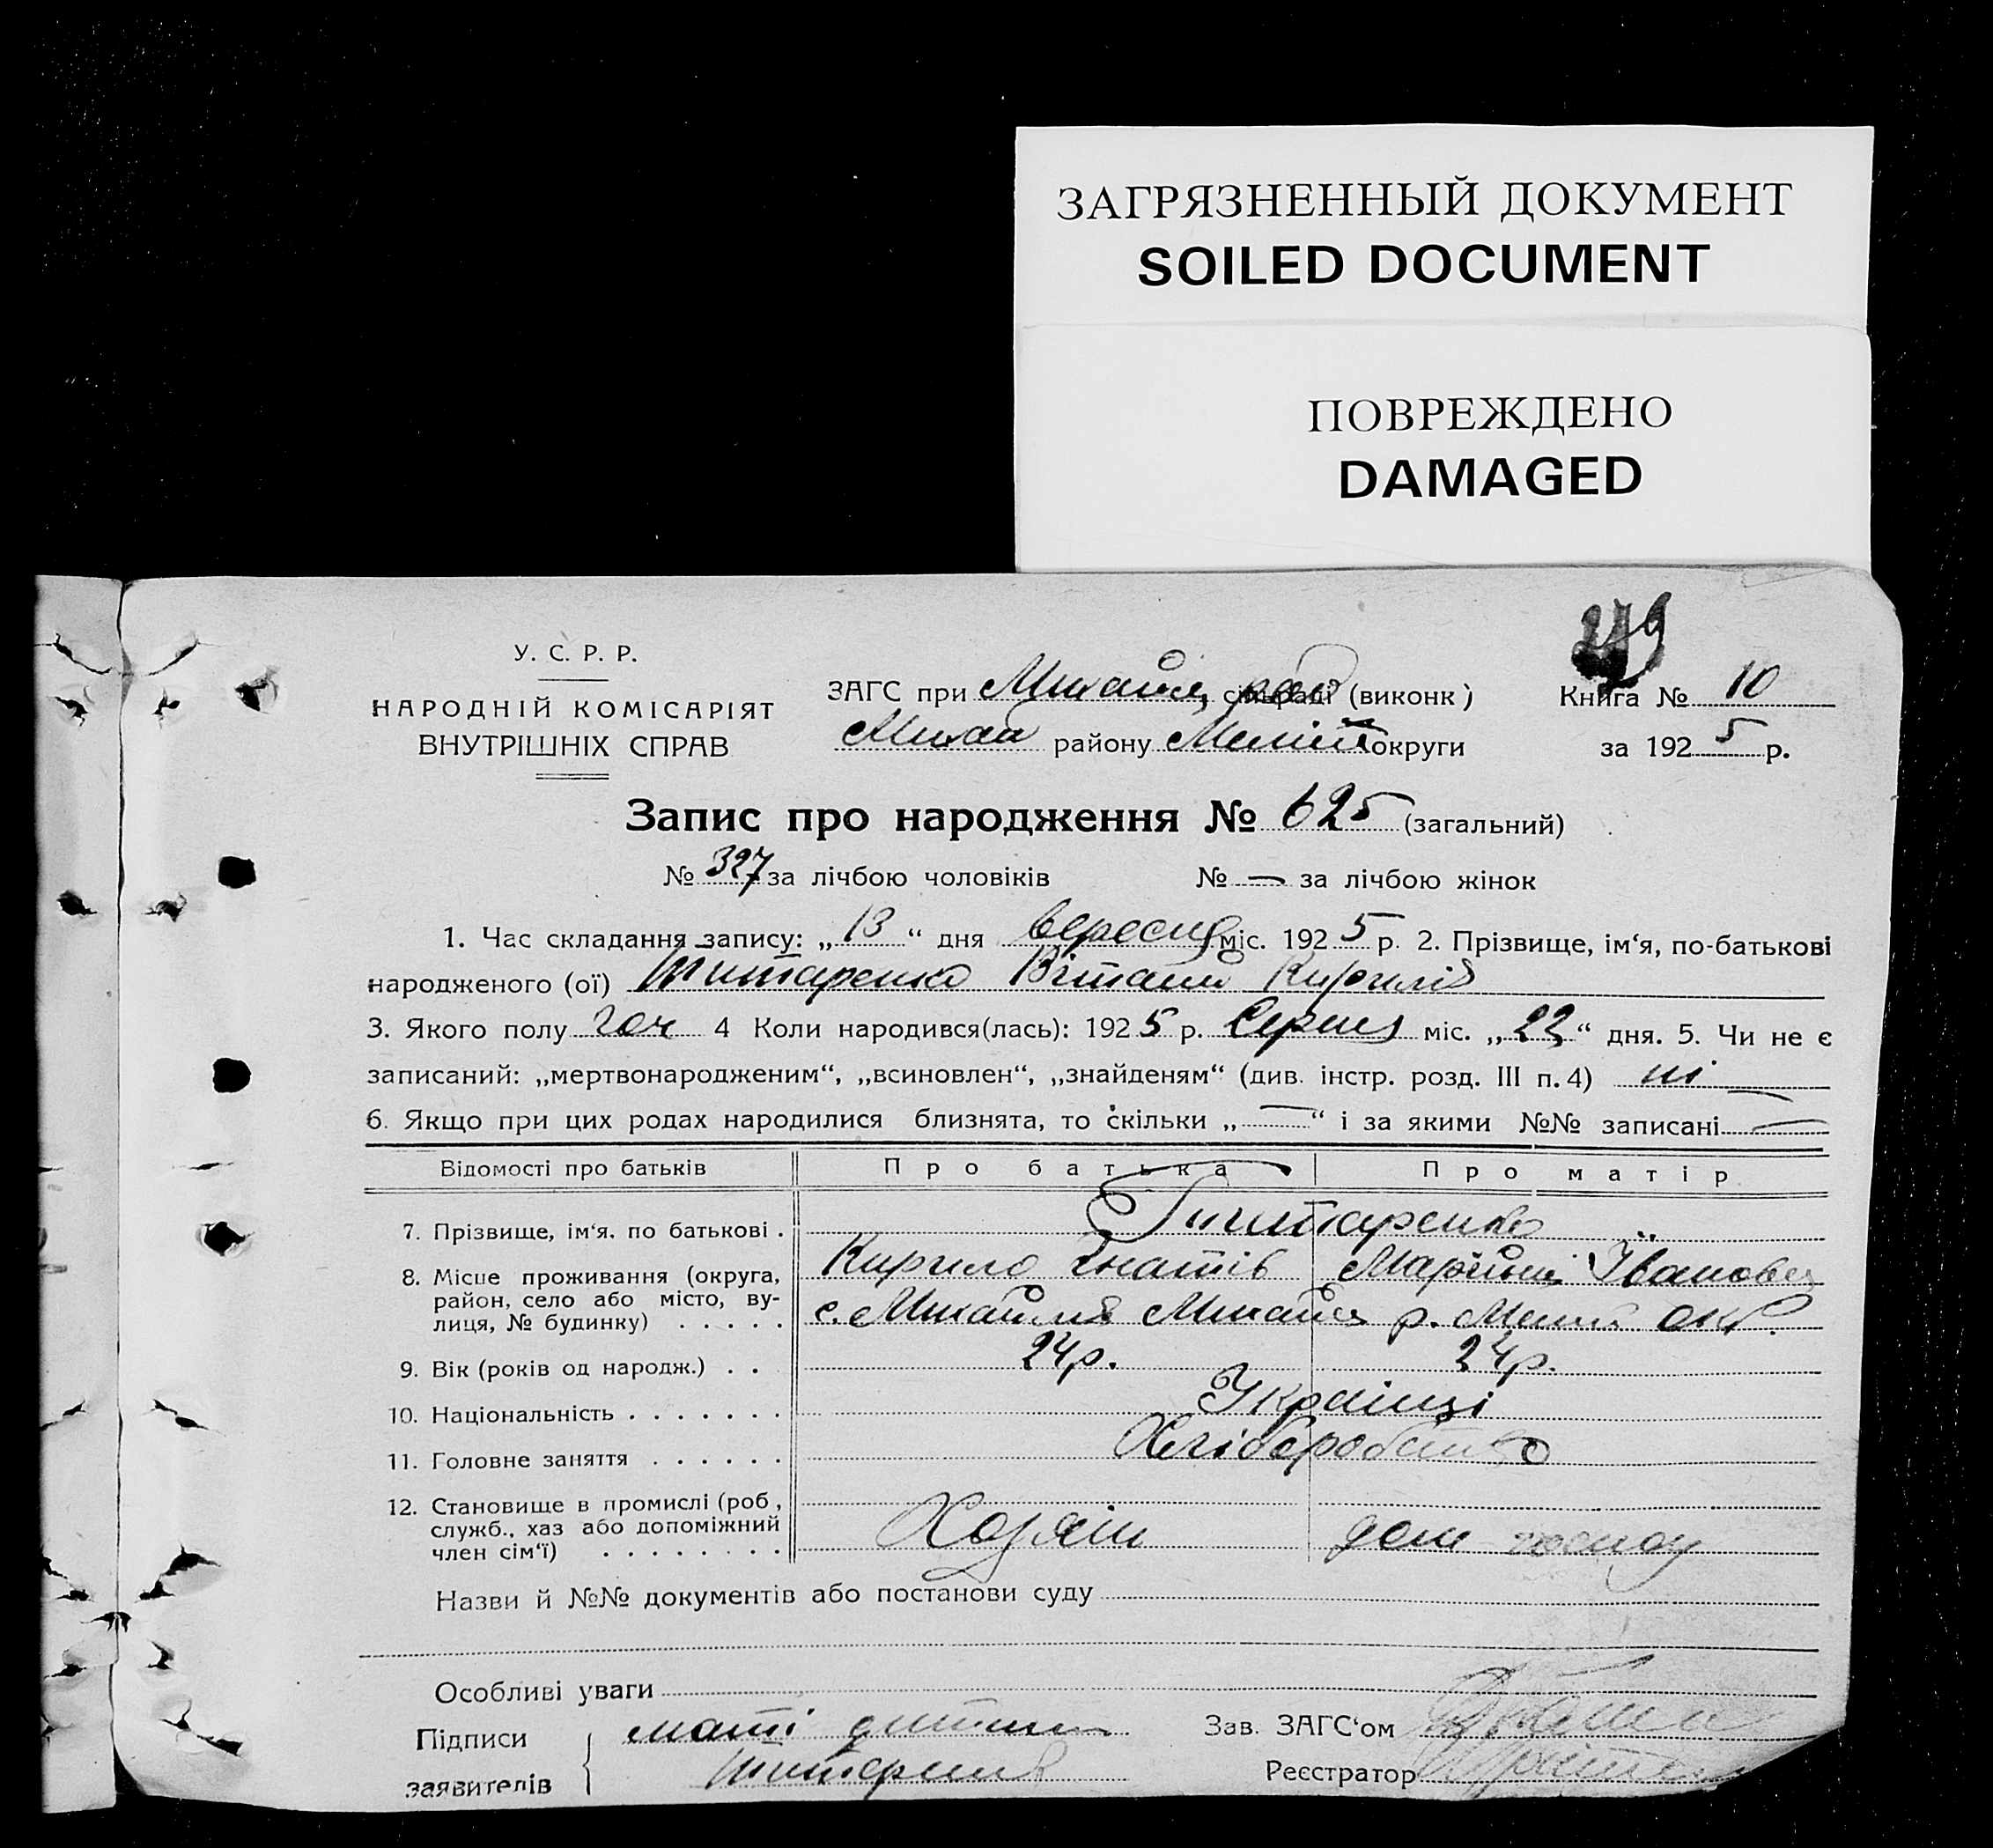 ЗАГРЯЗНЕННЫЙ ДОКУМЕНТ
SOILED DOCUMENT
ПОВРЕЖДЕНО
DAMAGED
У. С. Р. Р.
НАРОДНІЙ КОМІСАРІЯТ
ВНУТРІШНІХ СПРАВ
ЗАГС при сільраді (виконк)
району округи
Книга № 10
за 1925 р.
Запис про народження № 625 (загальний)
№ 327 за лічбою чоловіків № — за лічбою жінок
1. Час складання запису: „13“ дня вересня міс. 1925 р. 2. Прізвище, ім‘я, по-батькові
народженого (ої) Титаренко Віталій Кирилів
3. Якого полу чол 4 Коли народився(лась): 1925 р. Серпня міс. „22“ дня. 5. Чи не є
записаний: „мертвонародженим“, „всиновлен“, „знайденям“ (див. інстр. розд. III п. 4) ні
6. Якщо при цих родах народилися близнята, то скільки „—“ і за якими №№ записані —
Відомості про батьків Про батька Про матір
7. Прізвище, ім‘я. по батькові . Титаренко
Кирило Гнатів Іванова
8. Місце проживання (округа, район, село або місто, вулиця, № будинку) . . . . . с. р. окр.
9. Вік (років од народж.) . . 24 р. 24 р.
10. Національність . . . . . . . Українці
11. Головне заняття . . . . . . Хліборобство
12. Становище в промислі (роб, служб., хаз або допоміжний член сім‘ї) . . . . . . . . Хозяїн дом
Назви й №№ документів або постанови суду
Особливі уваги
Підписи заявителів мати дитини
Зав. ЗАГС‘ом
Реєстратор